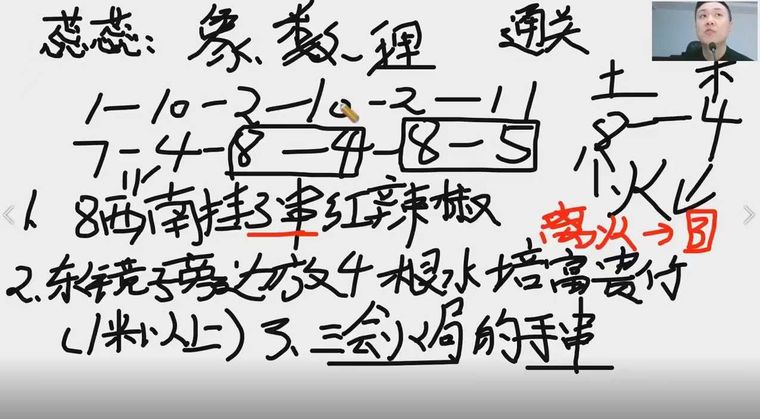 蕊蕊: 象、数、理 通关
土 木
1-10-2-10-2-11
7-4-8-4-8-5
8 — 4
火
离火→3
1. 8西南挂3串红辣椒
2.东镜子旁边放4根水培富贵竹
(1米以上) 3、三会火局的手串